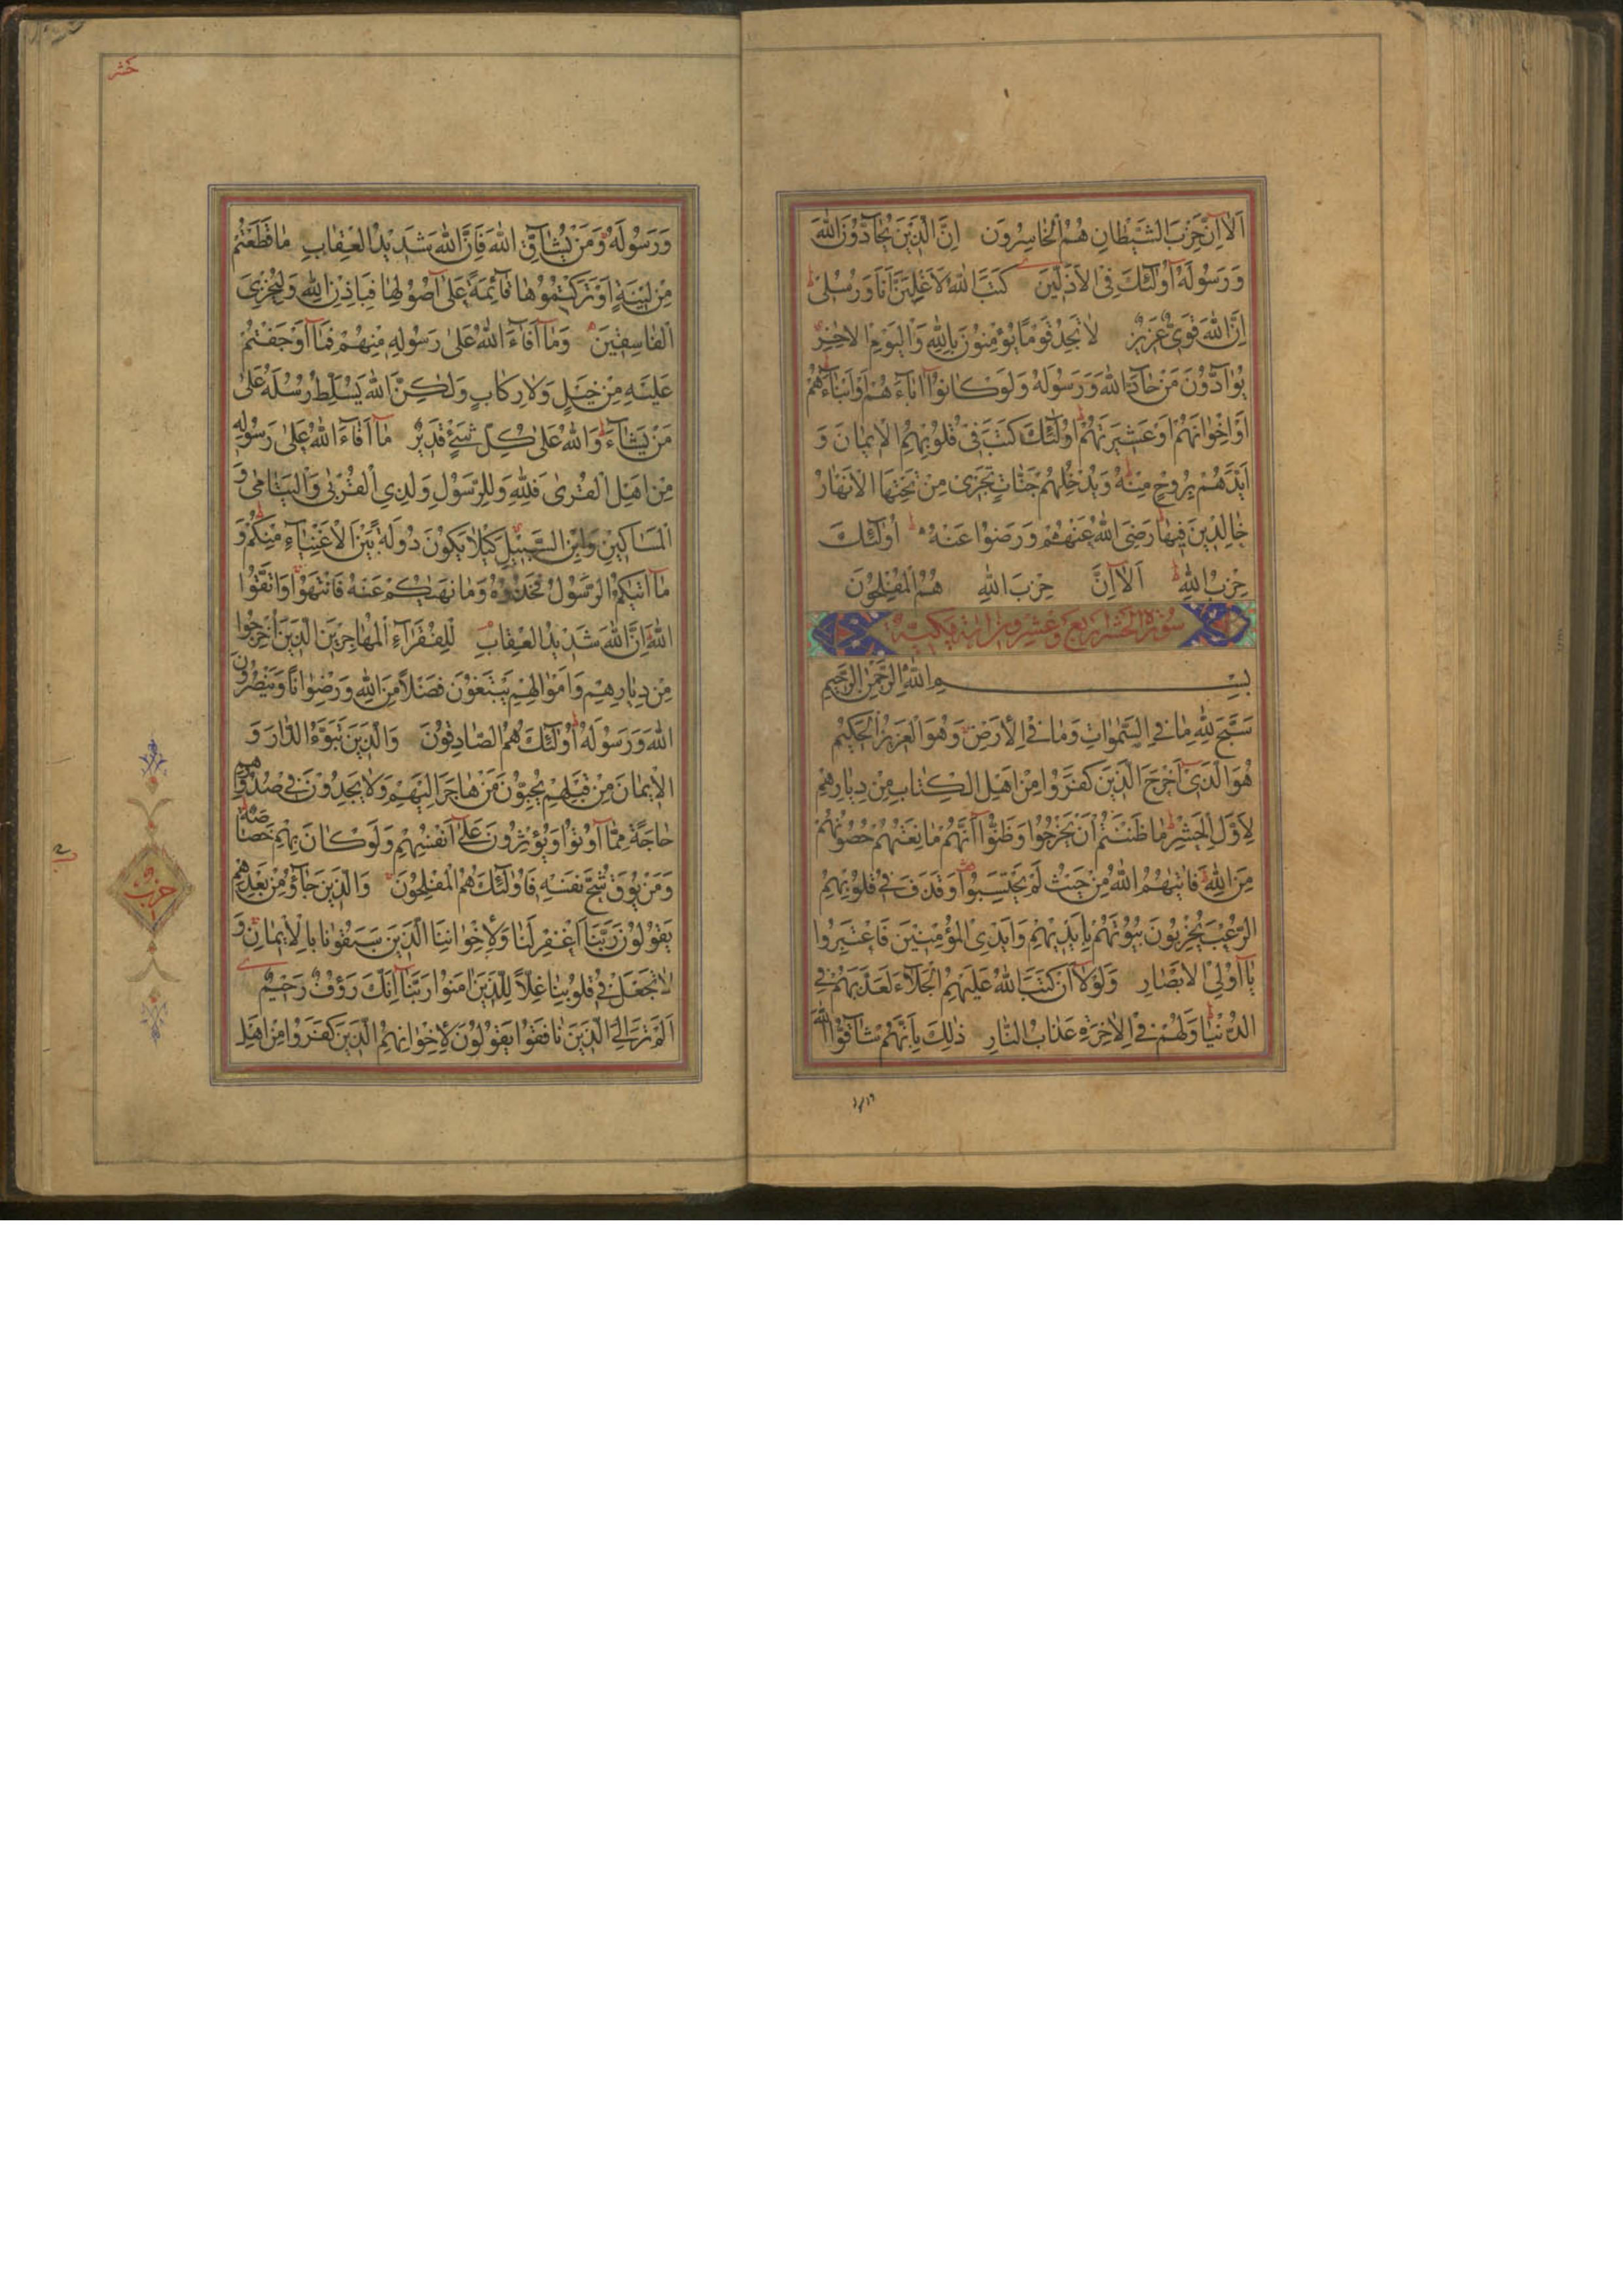 اَلٰا اِنَّ حِزْبَ الشَّيْطٰانِ هُمُ الْخٰاسِرُونَ اِنَّ الَّذٖينَ يُحٰآدُّونَ اللّٰهَ
وَرَسُولَهُ اُولٰٓئِكَ فِى الْاَذَلّٖينَ كَتَبَ اللّٰهُ لَاَغْلِبَنَّ اَنَا وَرُسُلٖى
اِنَّ اللّٰهَ قَوِىٌّ عَزٖيزٌ لٰا تَجِدُ قَوْمًا يُؤْمِنُونَ بِاللّٰهِ وَالْيَوْمِ الْاٰخِرِ
يُوٰآدُّونَ مَنْ حٰآدَّ اللّٰهَ وَرَسُولَهُ وَلَوْ كٰانُوٓا اٰبٰآءَهُمْ اَوْ اَبْنٰآءَهُمْ
اَوْ اِخْوٰانَهُمْ اَوْ عَشٖيرَتَهُمْ اُولٰٓئِكَ كَتَبَ فٖى قُلُوبِهِمُ الْاٖيمٰانَ وَ
اَيَّدَهُمْ بِرُوحٍ مِنْهُ وَيُدْخِلُهُمْ جَنّٰاتٍ تَجْرٖى مِنْ تَحْتِهَا الْاَنْهٰارُ
خٰالِدٖينَ فٖيهٰا رَضِىَ اللّٰهُ عَنْهُمْ وَرَضُوا عَنْهُ اُولٰٓئِكَ
حِزْبُ اللّٰهِ اَلٰٓا اِنَّ حِزْبَ اللّٰهِ هُمُ الْمُفْلِحُونَ
سُورَةُ الْحَشْرِ اَرْبَعَ وَعِشْرُونَ اٰيَة
بِسْمِ اللّٰهِ الرَّحْمٰنِ الرَّحٖيمِ
سَبَّحَ لِلّٰهِ مٰا فِى السَّمٰوٰاتِ وَمٰا فِى الْاَرْضِ وَهُوَ الْعَزٖيزُ الْحَكٖيمُ
هُوَ الَّذٖىٓ اَخْرَجَ الَّذٖينَ كَفَرُوا مِنْ اَهْلِ الْكِتٰابِ مِنْ دِيٰارِهِمْ
لِاَوَّلِ الْحَشْرِ مٰا ظَنَنْتُمْ اَنْ يَخْرُجُوا وَظَنُّوٓا اَنَّهُمْ مٰانِعَتُهُمْ حُصُونُهُمْ
مِنَ اللّٰهِ فَاَتٰيهُمُ اللّٰهُ مِنْ حَيْثُ لَمْ يَحْتَسِبُوا وَقَذَفَ فٖى قُلُوبِهِمُ
الرُّعْبَ يُخْرِبُونَ بُيُوتَهُمْ بِاَيْدٖيهِمْ وَاَيْدِى الْمُؤْمِنٖينَ فَاعْتَبِرُوا
يٰٓا اُولِى الْاَبْصٰارِ وَلَوْلٰٓا اَنْ كَتَبَ اللّٰهُ عَلَيْهِمُ الْجَلٰٓاءَ لَعَذَّبَهُمْ فِى
الدُّنْيٰا وَلَهُمْ فِى الْاٰخِرَةِ عَذٰابُ النّٰارِ ذٰلِكَ بِاَنَّهُمْ شٰآقُّوا اللّٰهَ
حشر
وَرَسُولَهُ وَمَنْ يُشٰآقِّ اللّٰهَ فَاِنَّ اللّٰهَ شَدٖيدُ الْعِقٰابِ مٰا قَطَعْتُمْ
مِنْ لٖينَةٍ اَوْ تَرَكْتُمُوهٰا قٰآئِمَةً عَلٰٓى اُصُولِهٰا فَبِاِذْنِ اللّٰهِ وَلِيُخْزِىَ
الْفٰاسِقٖينَ وَمٰٓا اَفٰٓاءَ اللّٰهُ عَلٰى رَسُولِهٖ مِنْهُمْ فَمٰٓا اَوْجَفْتُمْ
عَلَيْهِ مِنْ خَيْلٍ وَلٰا رِكٰابٍ وَلٰكِنَّ اللّٰهَ يُسَلِّطُ رُسُلَهُ عَلٰى
مَنْ يَشٰٓاءُ وَاللّٰهُ عَلٰى كُلِّ شَىْءٍ قَدٖيرٌ مٰٓا اَفٰٓاءَ اللّٰهُ عَلٰى رَسُولِهٖ
مِنْ اَهْلِ الْقُرٰى فَلِلّٰهِ وَلِلرَّسُولِ وَلِذِى الْقُرْبٰى وَالْيَتٰامٰى وَ
الْمَسٰاكٖينِ وَابْنِ السَّبٖيلِ كَيْلٰا يَكُونَ دُولَةً بَيْنَ الْاَغْنِيٰٓاءِ مِنْكُمْ وَ
مٰٓا اٰتٰيكُمُ الرَّسُولُ فَخُذُوهُ وَمٰا نَهٰيكُمْ عَنْهُ فَانْتَهُوا وَاتَّقُوا
اللّٰهَ اِنَّ اللّٰهَ شَدٖيدُ الْعِقٰابِ لِلْفُقَرٰٓاءِ الْمُهٰاجِرٖينَ الَّذٖينَ اُخْرِجُوا
مِنْ دِيٰارِهِمْ وَاَمْوٰالِهِمْ يَبْتَغُونَ فَضْلًا مِنَ اللّٰهِ وَرِضْوٰانًا وَيَنْصُرُونَ
اللّٰهَ وَرَسُولَهُ اُولٰٓئِكَ هُمُ الصّٰادِقُونَ وَالَّذٖينَ تَبَوَّءُ الدّٰارَ وَ
الْاٖيمٰانَ مِنْ قَبْلِهِمْ يُحِبُّونَ مَنْ هٰاجَرَ اِلَيْهِمْ وَلٰا يَجِدُونَ فٖى صُدُورِهِمْ
حٰاجَةً مِمّٰٓا اُوتُوا وَيُؤْثِرُونَ عَلٰٓى اَنْفُسِهِمْ وَلَوْ كٰانَ بِهِمْ خَصٰاصَةٌ
وَمَنْ يُوقَ شُحَّ نَفْسِهٖ فَاُولٰٓئِكَ هُمُ الْمُفْلِحُونَ وَالَّذٖينَ جٰآؤُ مِنْ بَعْدِهِمْ
يَقُولُونَ رَبَّنَا اغْفِرْ لَنٰا وَلِاِخْوٰانِنَا الَّذٖينَ سَبَقُونٰا بِالْاٖيمٰانِ وَ
لٰا تَجْعَلْ فٖى قُلُوبِنٰا غِلًّا لِلَّذٖينَ اٰمَنُوا رَبَّنٰٓا اِنَّكَ رَؤُفٌ رَحٖيمٌ
اَلَمْ تَرَ اِلَى الَّذٖينَ نٰافَقُوا يَقُولُونَ لِاِخْوٰانِهِمُ الَّذٖينَ كَفَرُوا مِنْ اَهْلِ
حزب